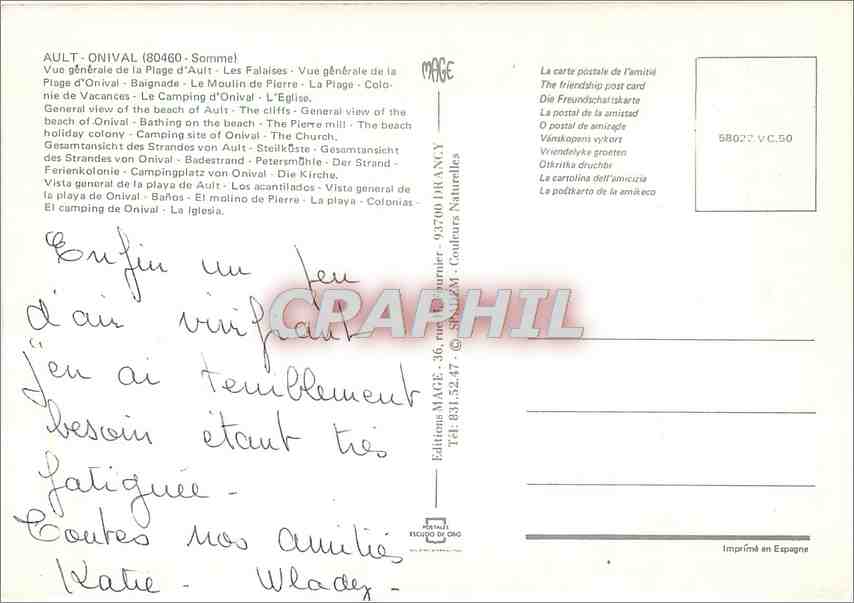 AULT - ONIVAL (80460 - Somme)
Vue générale de la Plage d'Ault - Les Falaises - Vue générale de la
Plage d'Onival - Baignade - Le Moulin de Pierre - La Plage - Colo-
nie de Vacances - Le Camping d'Onival - L'Eglise.
General view of the beach of Ault - The cliffs - General view of the
beach of Onival - Bathing on the beach - The Pierre mill - The beach
holiday colony - Camping site of Onival - The Church.
Gesamtansicht des Strandes von Ault - Steilküste - Gesamtansicht
des Strandes von Onival - Badestrand - Petersmühle - Der Strand -
Ferienkolonie - Campingplatz von Onival - Die Kirche.
Vista general de la playa de Ault - Los acantilados - Vista general de
la playa de Onival - Baños - El molino de Pierre - La playa - Colonias -
El camping de Onival - La Iglesia.
Enfin un peu
d'air vivifiant
j'en ai terriblement
besoin étant très
fatiguée -
Toutes nos amitiés
Katie - Wladez -
MAGE
Editions MAGE - 36, rue Fournier - 93700 DRANCY
Tél: 831.52.47 - © SPADEM - Couleurs Naturelles
POSTALES
ESCUDO DE ORO
La carte postale de l'amitié
The friendship post card
Die Freundschaftskarte
La postal de la amistad
O postal de amizagle
Vänskapens vykort
Vriendelyke groeten
Otkritka druchbe
La cartolina dell'amicizia
La poŝtkarto de la amikeco
58027.VC.50
Imprimé en Espagne
CPAPHIL